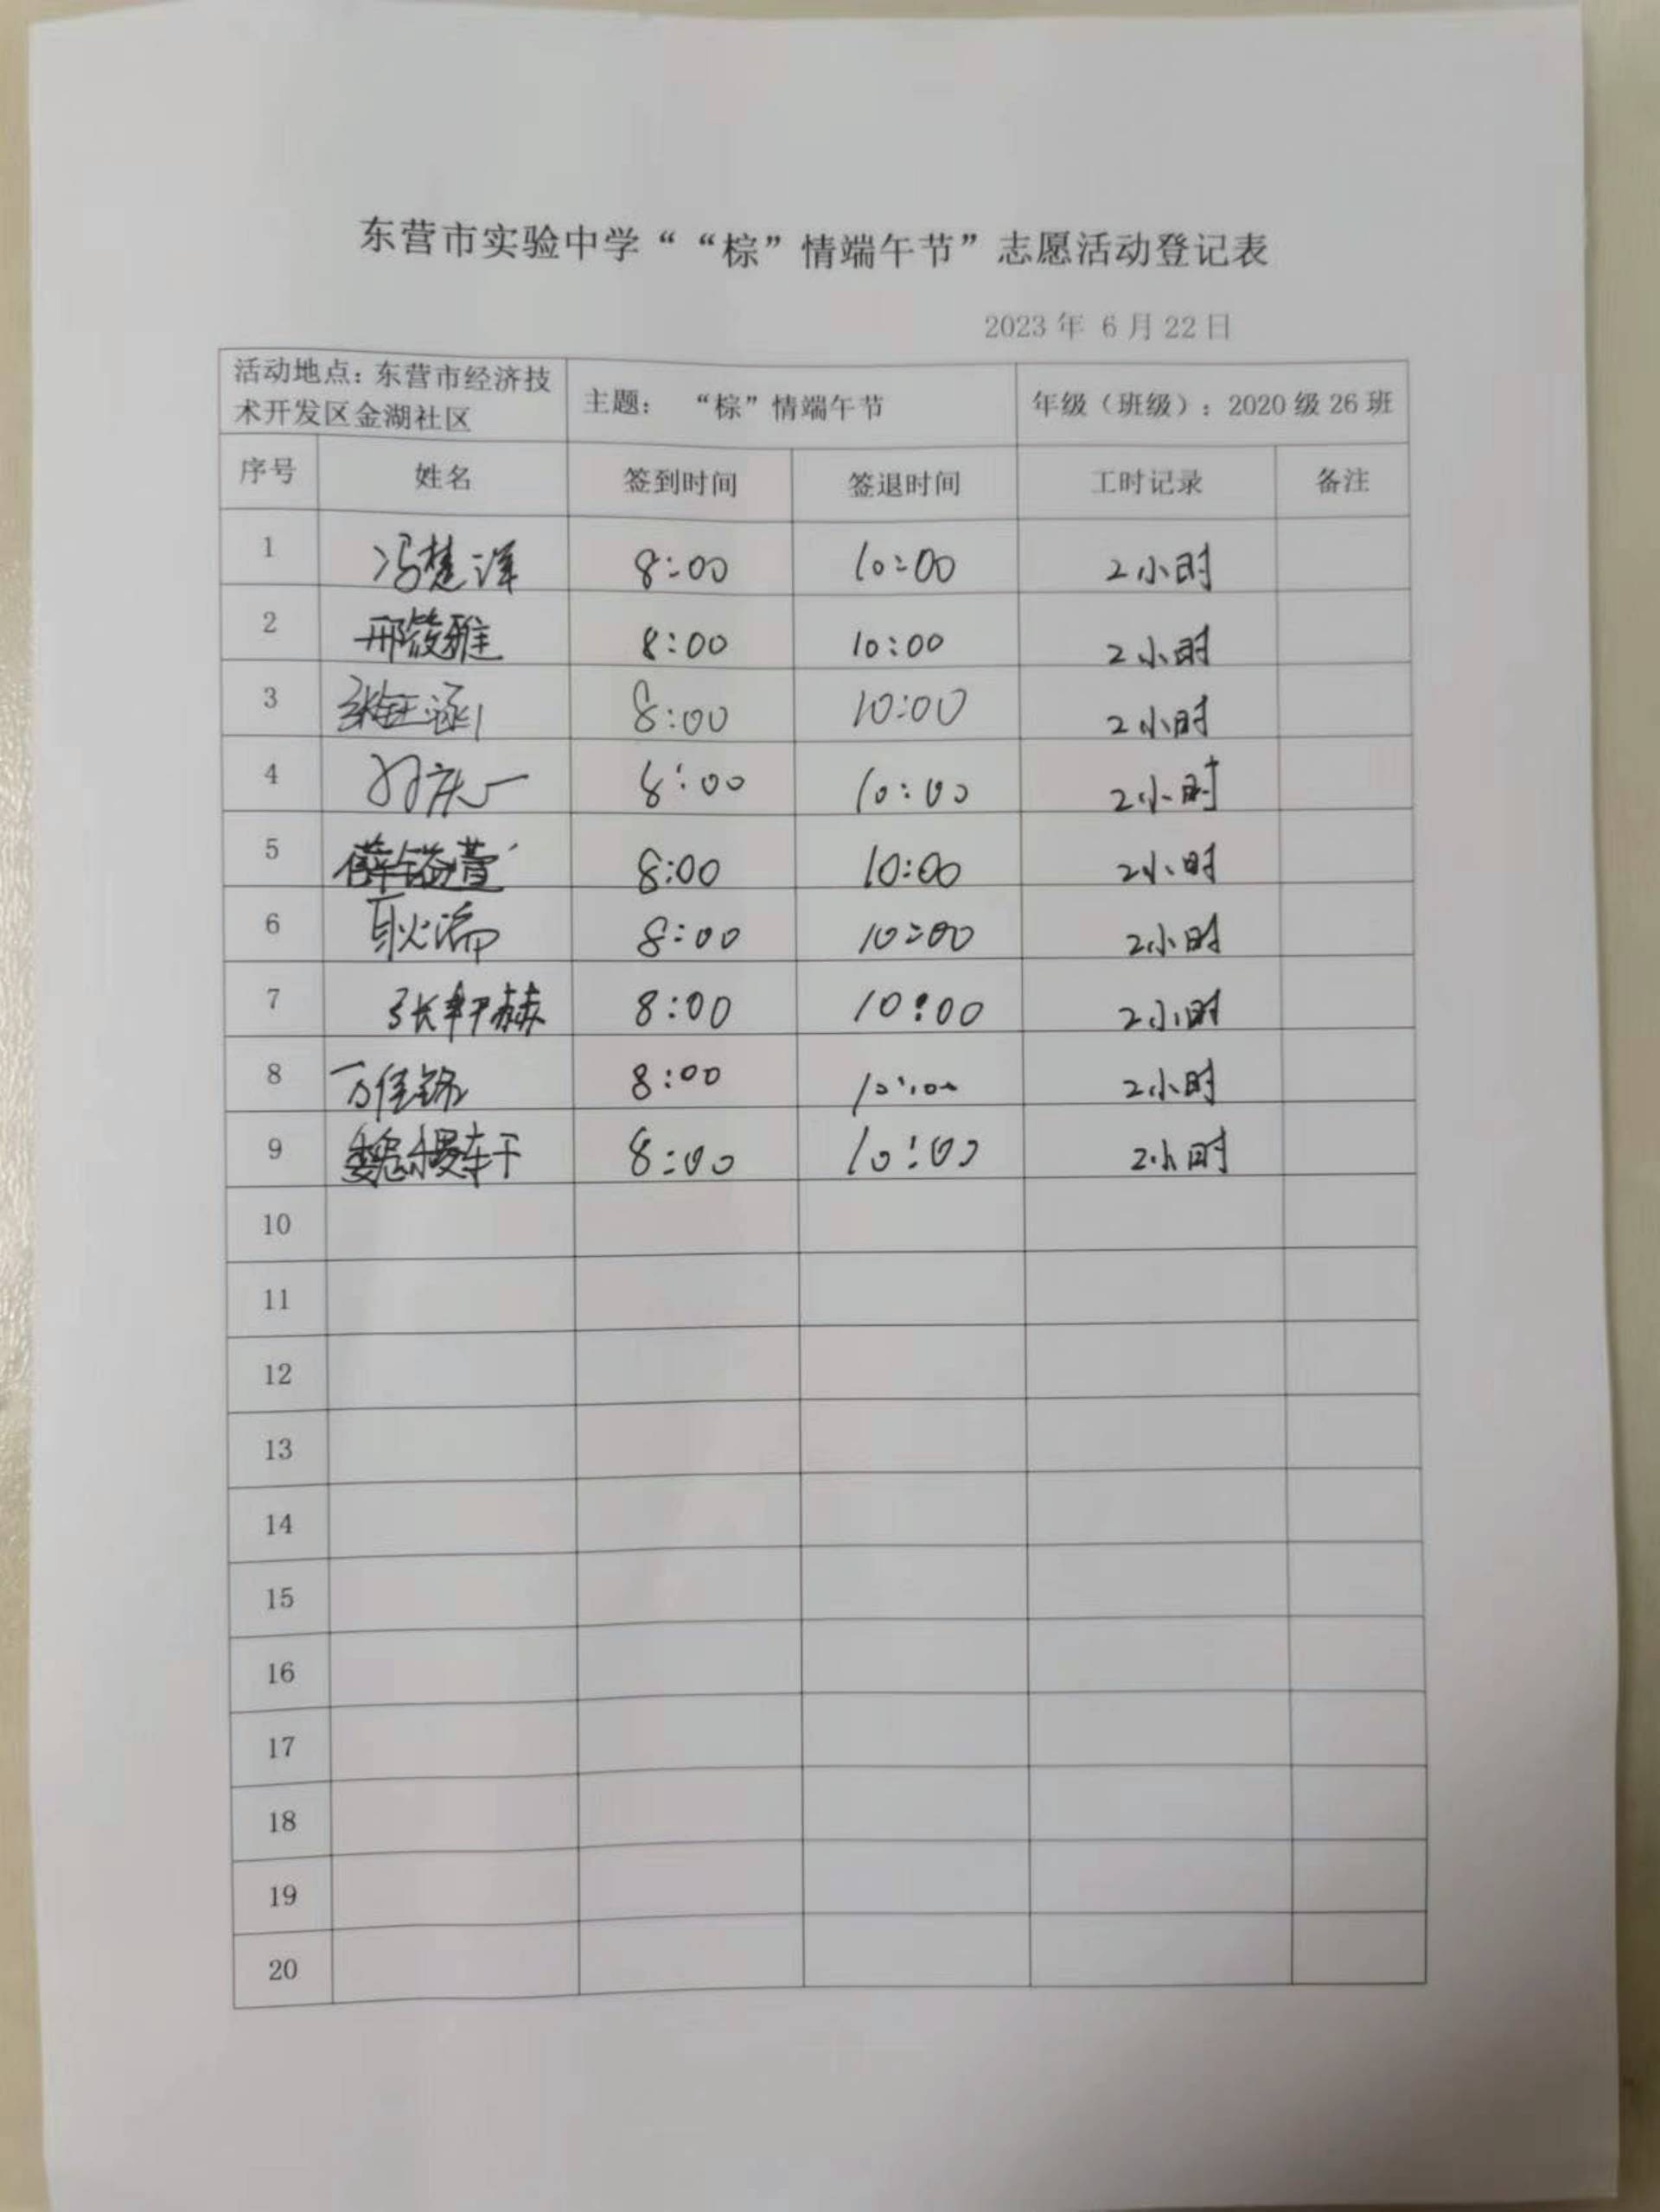 东营市实验中学““棕”情端午节”志愿活动登记表
2023年 6月22日
活动地点：东营市经济技
术开发区金湖社区
主题： “棕”情端午节
年级（班级）：2020级26班
序号 姓名 签到时间 签退时间 工时记录 备注
1 冯楚洋 8:00 10:00 2小时
2 邢筱雅 8:00 10:00 2小时
3 张钰涵 8:00 10:00 2小时
4 8:00 10:00 2小时
5 薛镒萱 8:00 10:00 2小时
6 耿湍 8:00 10:00 2小时
7 张轩赫 8:00 10:00 2小时
8 万佳铄 8:00 10:00 2小时
9 8:00 10:00 2小时
10
11
12
13
14
15
16
17
18
19
20